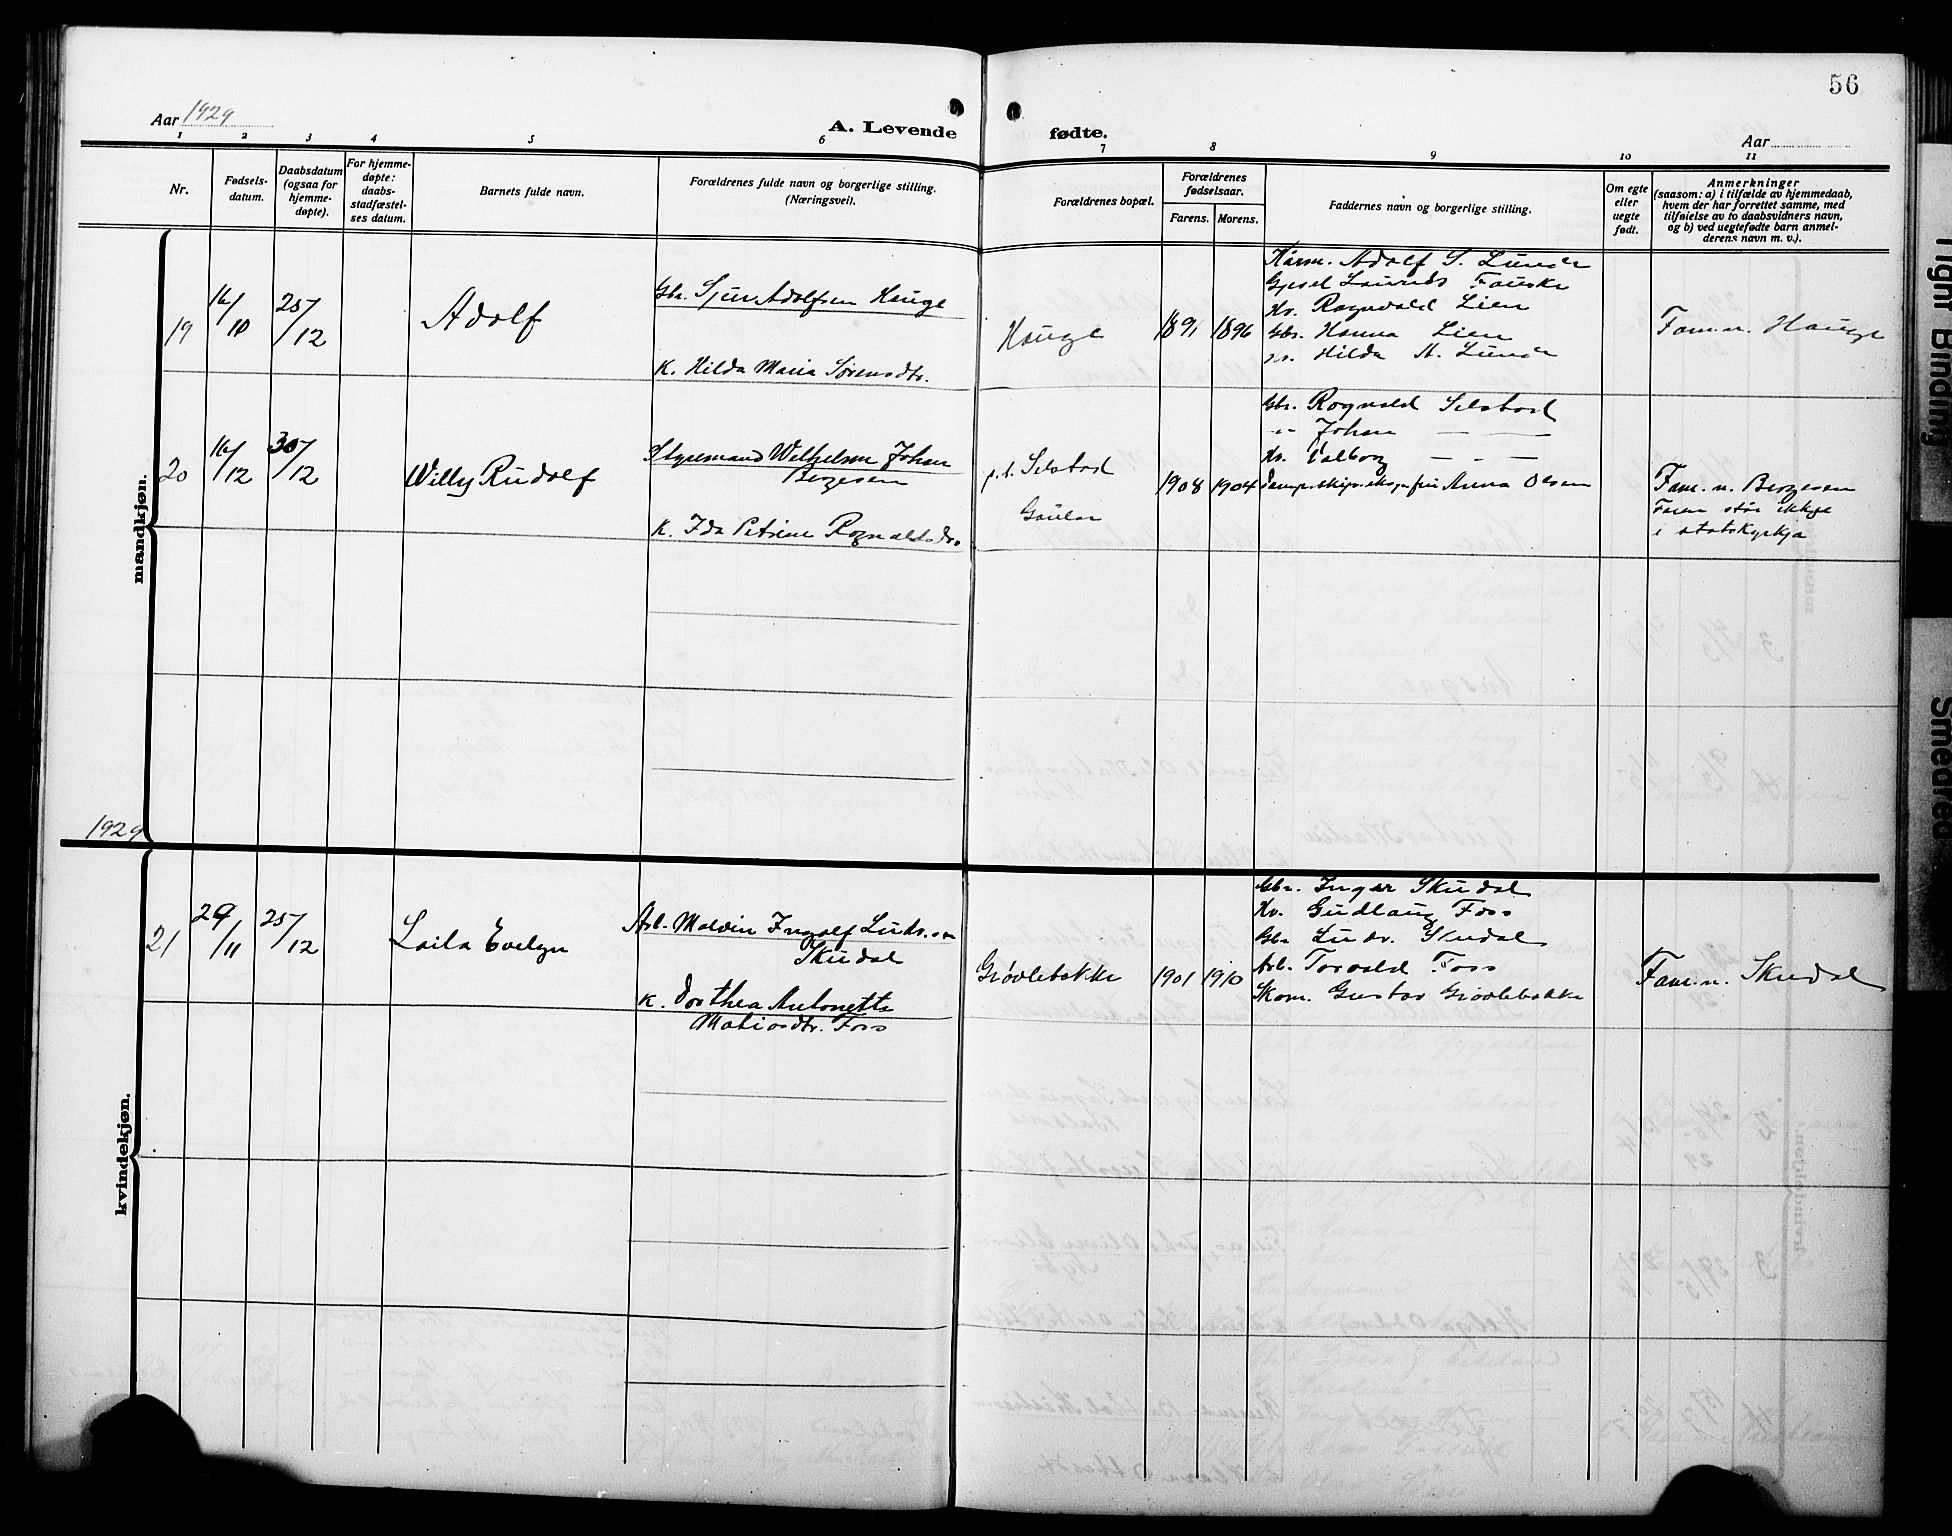 56
Aar 1929
A. Levende fødte.
Aar
1 2 3 4 5 6 7 8 9 10 11
Nr.
Fødsels-
datum.
Daabsdatum
(ogsaa for
hjemme-
døpte).
For hjemme-
døpte:
daabs-
stadfæstel-
ses datum.
Barnets fulde navn.
Forældrenes fulde navn og borgerlige stilling.
(Næringsvei).
Forældrenes bopæl.
Forældrenes
fødselsaar.
Farens. Morens.
Faddernes navn og borgerlige stilling.
Om egte
eller
uegte
født.
Anmerkninger
(saasom: a) i tilfælde av hjemmedaab,
hvem der har forrettet samme, med
tilføielse av to daabsvidners navn,
og b) ved uegtefødte barn anmel-
derens navn m. v.).
mandkjøn.
19
16/10
25/12
Adolf
Gbr. Sjur Adolfsen Hauge
K. Hilda Maria Sørensdtr.
Hauge
1891 1896
Kårm. Adolf S. Lunde
Gjesel Laurids Fauske
Kv. Ragnvald Lien
Gbr. Hanna Lien
Hilda A. Lunde
Fam.n. Hauge
20
16/12
30/12
Willy Rudolf
Styremand Wilhjelm Johan
Bergesen
K. Ida Petrine Rognaldsdr.
p.t. Selstad
Gaular
1908 1904
Gbr. Rognald Selstad
" Johan — —
Kv. Valborg — - —
Dampskipseksp. fru Anna Olsen
Fam. n. Bergesen
Faren står ikkje
i statskyrkja
1929
kvindekjøn.
21
29/11
25/12
Laila Evelyn
Arb. Malvin Ingolf Ludv.son
Skudal
K. Dorthea Antonette
Matiasdtr. Foss
Grøvlebakke
1901 1910
Gbr. Inger Skudal
Kv. Gudlaug Foss
Gbr. Ludv. Skudal
Arb. Torvald Foss
Skom. Gustav Grøvlebakke
Fam.n. Skudal
Tight Binding
Smeared